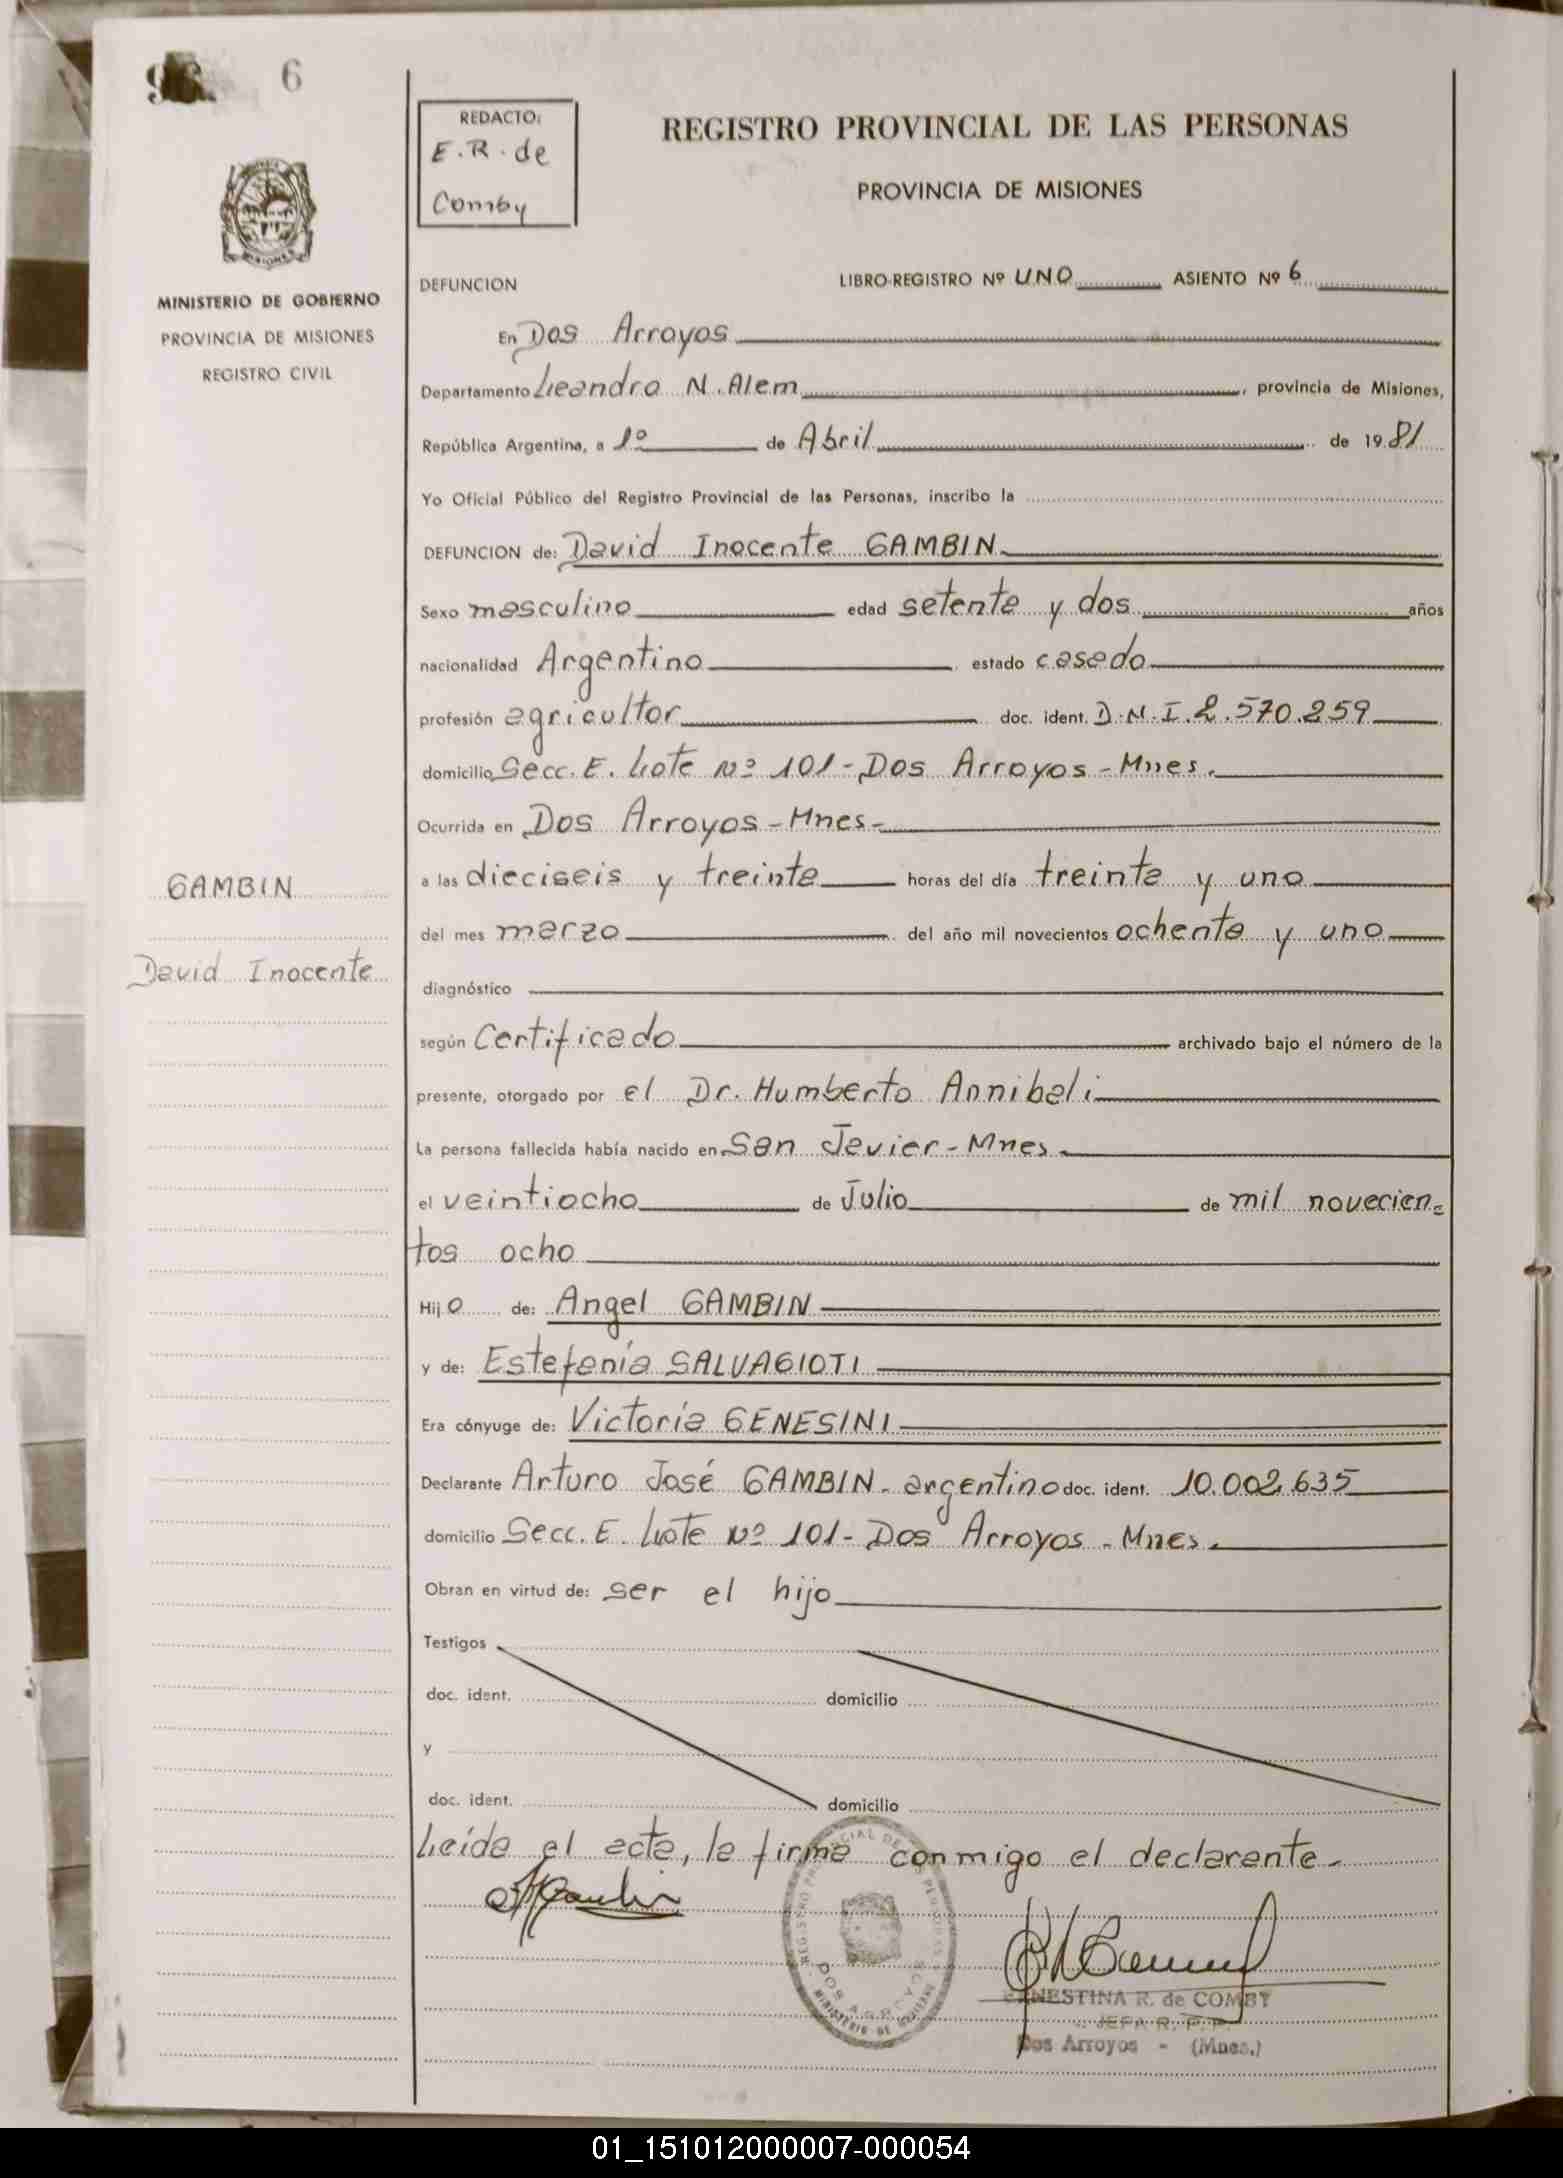 6
REDACTO:
E.R. de
Comby
REGISTRO PROVINCIAL DE LAS PERSONAS
PROVINCIA DE MISIONES
MISIONES
MINISTERIO DE GOBIERNO
PROVINCIA DE MISIONES
REGISTRO CIVIL
DEFUNCION
LIBRO-REGISTRO Nº UNO ASIENTO Nº 6
En Dos Arroyos
Departamento Leandro N. Alem, provincia de Misiones,
República Argentina, a 1º de Abril de 1981
Yo Oficial Público del Registro Provincial de las Personas, inscribo la
DEFUNCION de: David Inocente GAMBIN
Sexo masculino edad setenta y dos años
nacionalidad Argentino estado casado
profesión agricultor doc. ident. D.N.I. 2.570.259
domicilio Secc. E. Lote Nº 101 - Dos Arroyos - Mnes.
Ocurrida en Dos Arroyos - Mnes -
a las dieciseis y treinta horas del día treinta y uno
del mes marzo del año mil novecientos ochenta y uno
GAMBIN
David Inocente
diagnóstico
según Certificado archivado bajo el número de la
presente, otorgado por el Dr. Humberto Annibali
La persona fallecida había nacido en San Javier - Mnes.
el veintiocho de Julio de mil novecien=
tos ocho
Hijo de: Angel GAMBIN
y de: Estefanía SALVAGIOTI
Era cónyuge de: Victoria GENESINI
Declarante Arturo José GAMBIN - argentino doc. ident. 10.002.635
domicilio Secc. E. Lote Nº 101 - Dos Arroyos - Mnes.
Obran en virtud de: ser el hijo
Testigos
doc. ident. domicilio
y
doc. ident. domicilio
Leída el acta, la firma conmigo el declarante.
REGISTRO PROVINCIAL DE LAS PERSONAS
DOS ARROYOS
MINISTERIO DE GOBIERNO
ERNESTINA R. de COMBY
JEFA R. P. P.
Dos Arroyos - (Mnes.)
01_151012000007-000054